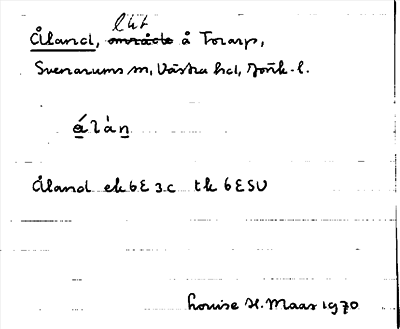 lht
Åland, område å Torarp,
Svenarums sn, Västra hd, Jönk. l.
álàn
Åland ek 6E 3c tk 6ESV
Louise H. Maas 1970